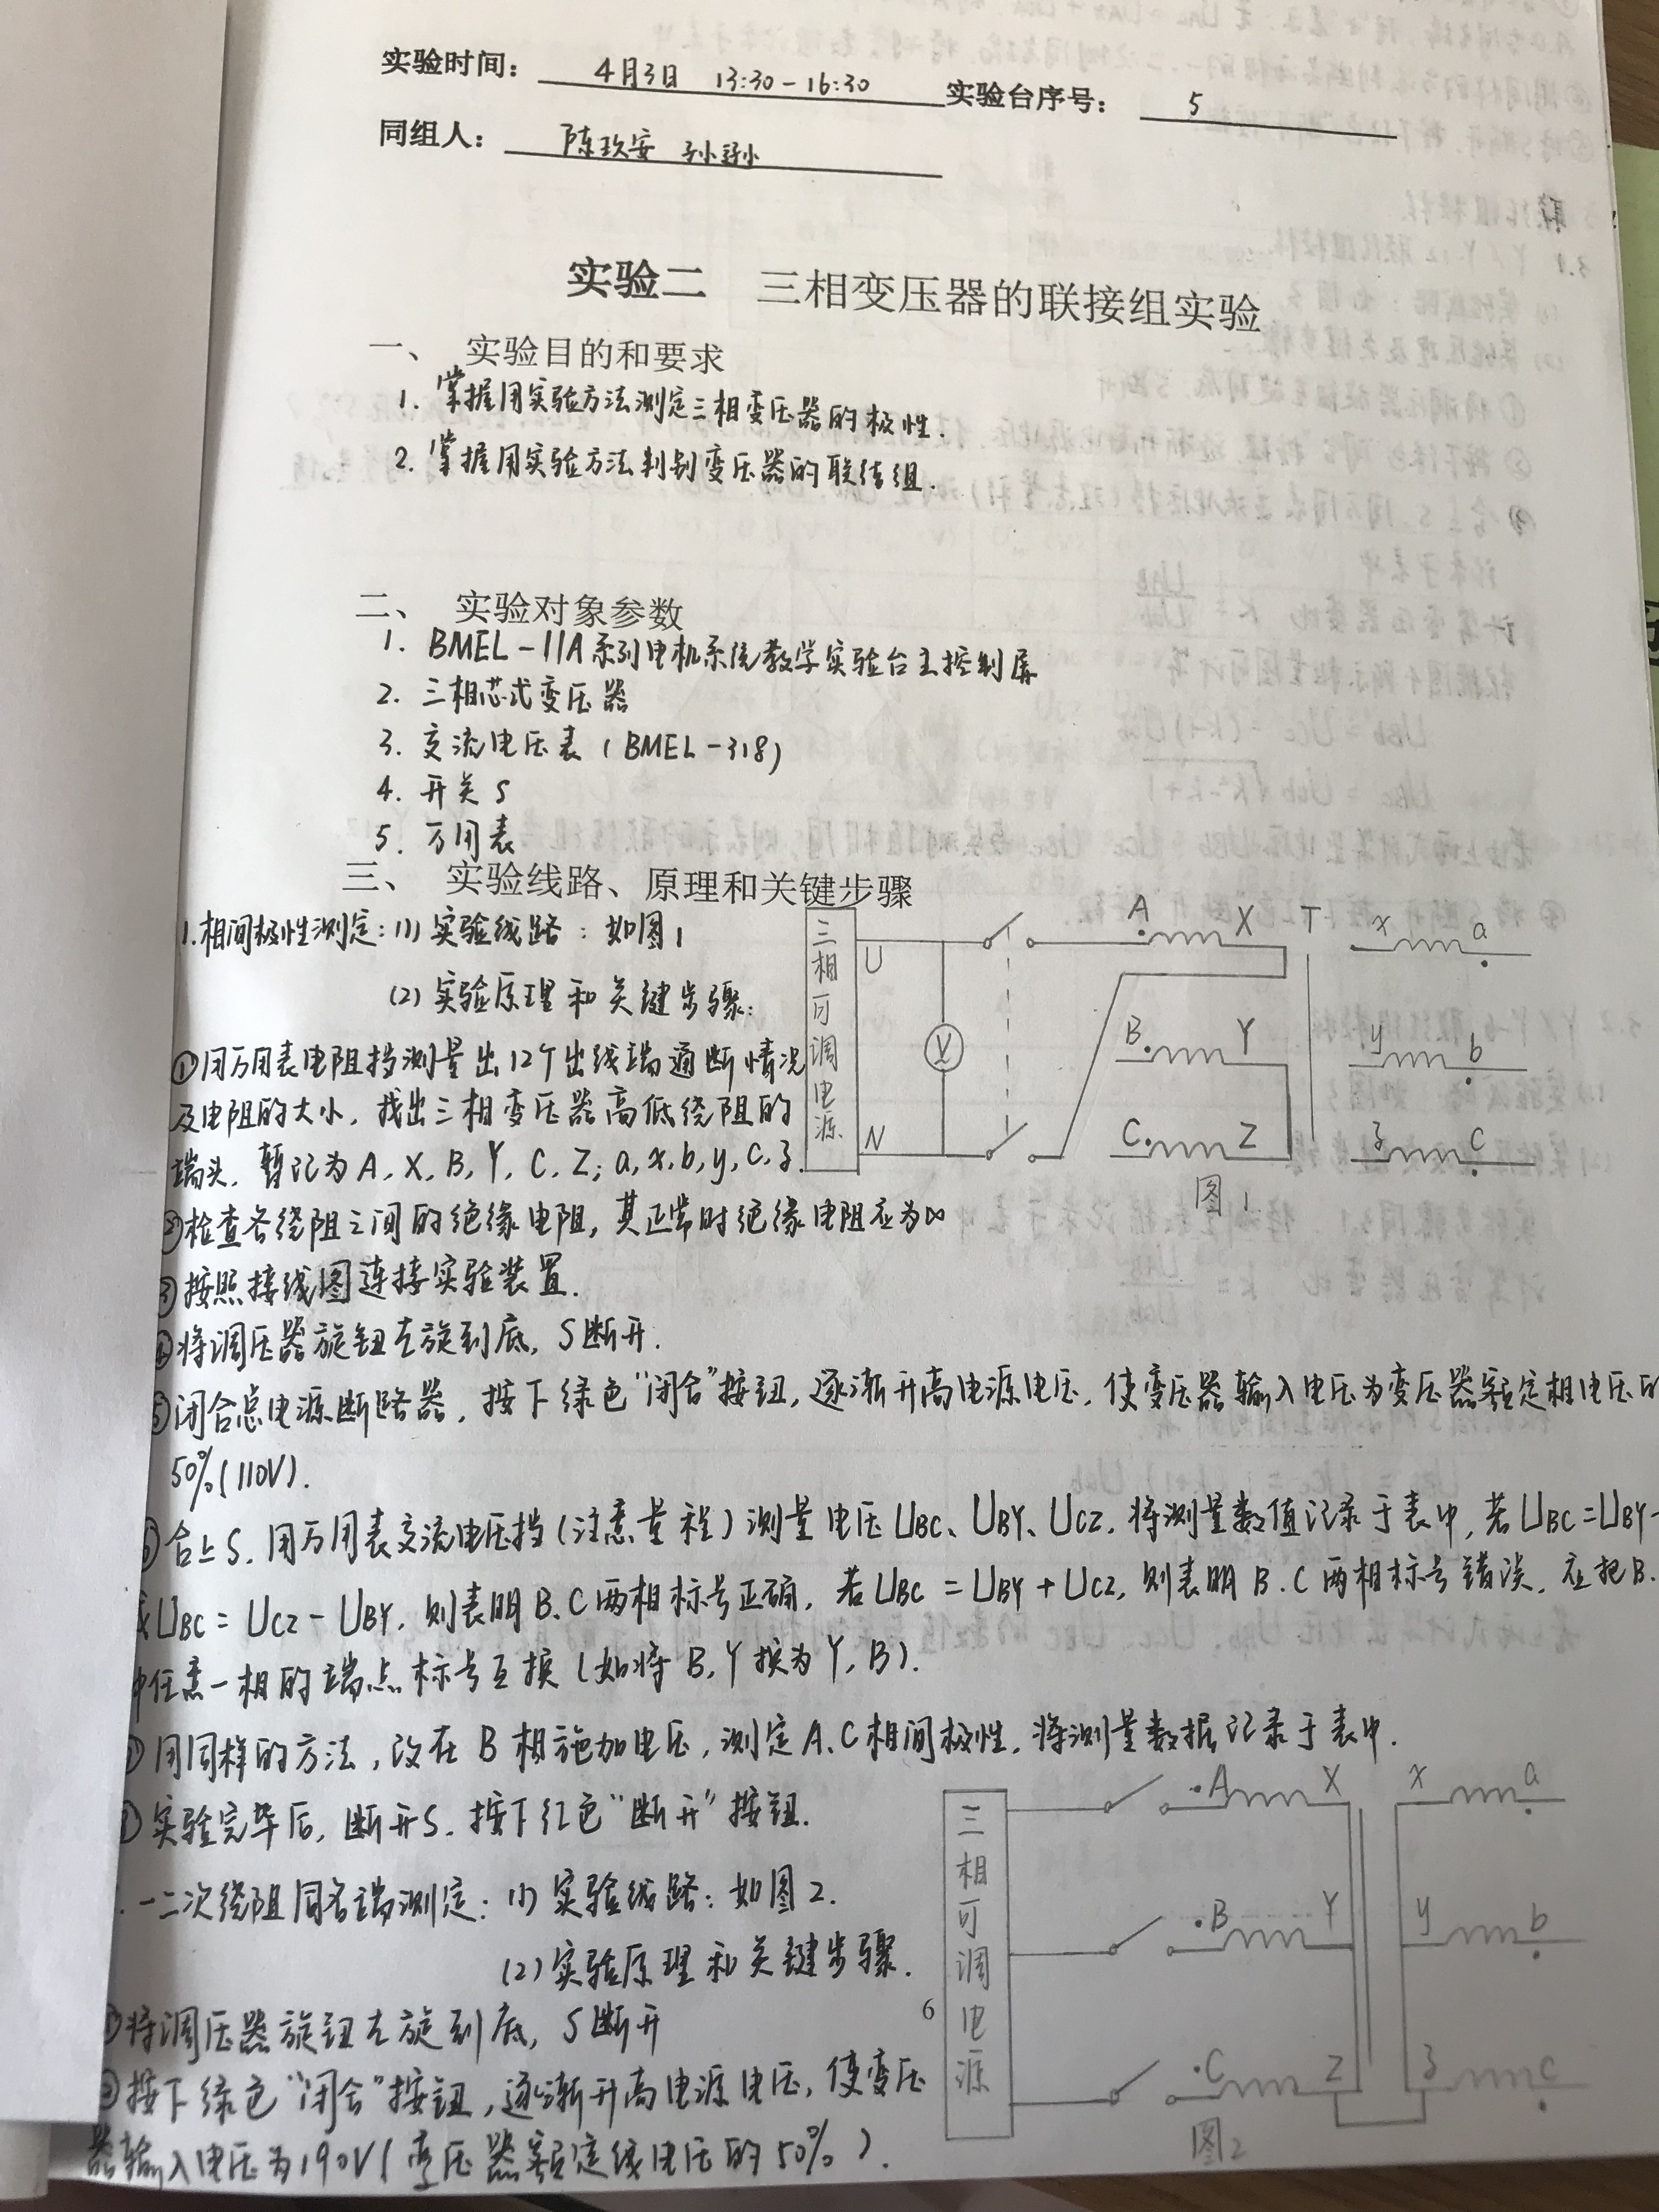 实验时间： 4月3日 13:30-16:30 实验台序号： 5
同组人： 陈玖安
实验二 三相变压器的联接组实验
一、 实验目的和要求
1. 掌握用实验方法测定三相变压器的极性.
2. 掌握用实验方法判别变压器的联结组.
二、 实验对象参数
1. BMEL-11A系列电机系统教学实验台主控制屏
2. 三相芯式变压器
3. 交流电压表 (BMEL-318)
4. 开关S
5. 万用表
三、 实验线路、原理和关键步骤
1.相间极性测定: (1) 实验线路: 如图1
(2) 实验原理和关键步骤:
①用万用表电阻挡测量出12个出线端通断情况
及电阻的大小, 找出三相变压器高低绕阻的
端头, 暂记为A, X, B, Y, C, Z; a, x, b, y, c, z.
②检查各绕阻之间的绝缘电阻, 其正常时绝缘电阻应为∞
③按照接线图连接实验装置.
④将调压器旋钮左旋到底, S断开.
⑤闭合总电源断路器, 按下绿色"闭合"按钮, 逐渐升高电源电压, 使变压器输入电压为变压器额定相电压的
50%(110V).
⑥合上S. 用万用表交流电压挡(注意量程)测量电压UBC、UBY、UCZ. 将测量数值记录于表中, 若UBC=UBY-
UBC = UCZ - UBY, 则表明B、C两相标号正确, 若UBC = UBY + UCZ, 则表明B、C两相标号错误, 应把B.
中任意一相的端点标号互换(如将B, Y换为Y, B).
用同样的方法, 改在B相施加电压, 测定A、C相间极性, 将测量数据记录于表中.
实验完毕后, 断开S. 按下红色"断开"按钮.
一二次绕阻同名端测定: (1) 实验线路: 如图2.
(2) 实验原理和关键步骤.
①将调压器旋钮左旋到底, S断开
②按下绿色"闭合"按钮, 逐渐升高电源电压, 使变压
器输入电压为190V(变压器额定线电压的50%).
三相可调电源
U
N
V
A X T x a
B Y y b
C Z z c
图1
三相可调电源
A X x a
B Y y b
C Z z c
图2
6